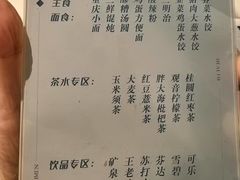 主食
面食：
重庆小面
三鲜馄饨
醪糟汤圆
鸡蛋方便面
酸辣粉
三明治
韭菜鸡蛋水饺
猪肉大葱水饺
菜水饺
茶水专区：
玉米须茶
大麦茶
红豆薏米茶
胖大海枇杷茶
观音柠檬茶
桂圆红枣茶
饮品专区：
矿泉
王老
苏打
芬达
雪碧
可乐